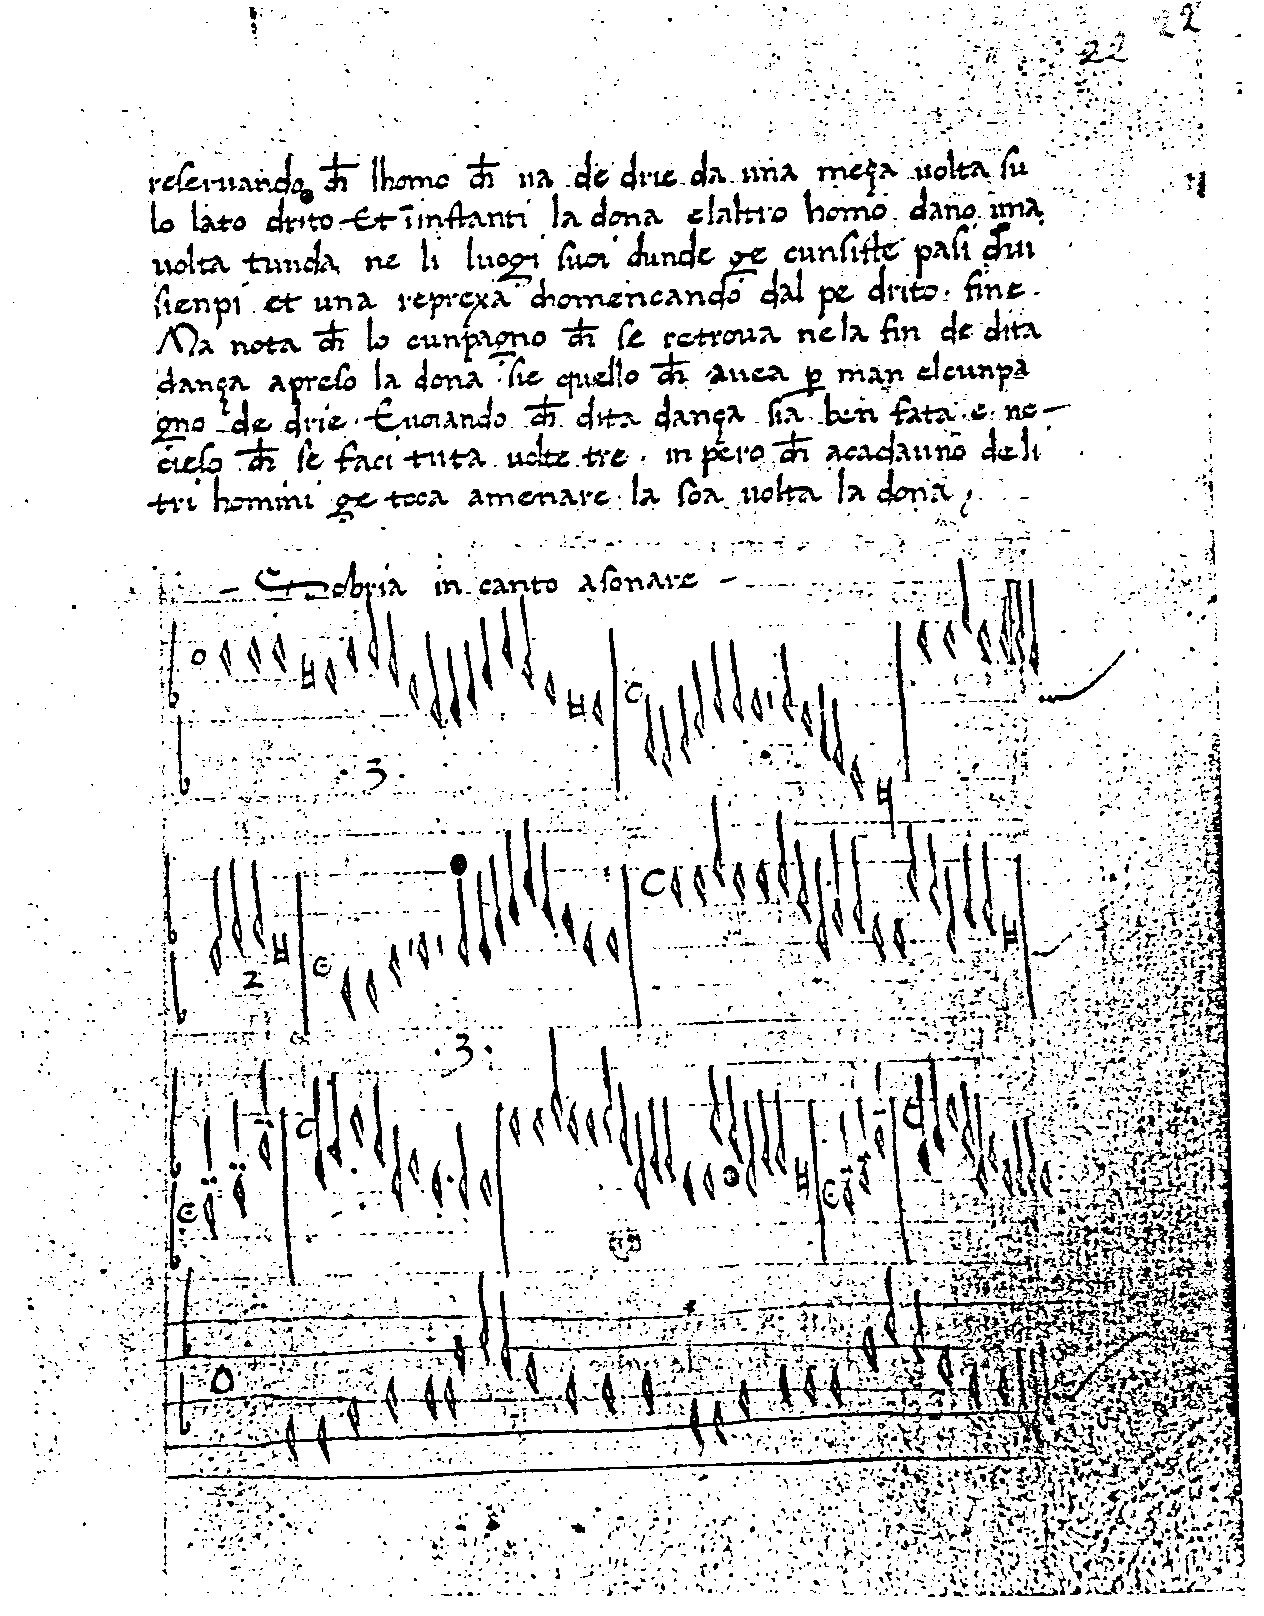 22
22
reseruando ch̄ lhomo ch̄ ua de drie da una meça uolta su
lo lato drito Et īinstanti la dona elaltro homo dano una
uolta tunda ne li luogi suoi dunde ge cunsiste pasi dui
sienpi et una reprexa chomencando dal pe drito. fine.
Ma nota ch̄ lo cunpagno ch̄ se retroua nela fin de dita
dança apreso la dona sie quello ch̄ auea p man elcunpa
gno de drie. E uoiando ch̄ dita dança sia ben fata e ne
cieso ch̄ se faci tuta uolte tre. in pero ch̄ acadauno de li
tri homini ge toca amenare la soa uolta la dona
Sobria in canto asonare
.3.
2
.3.